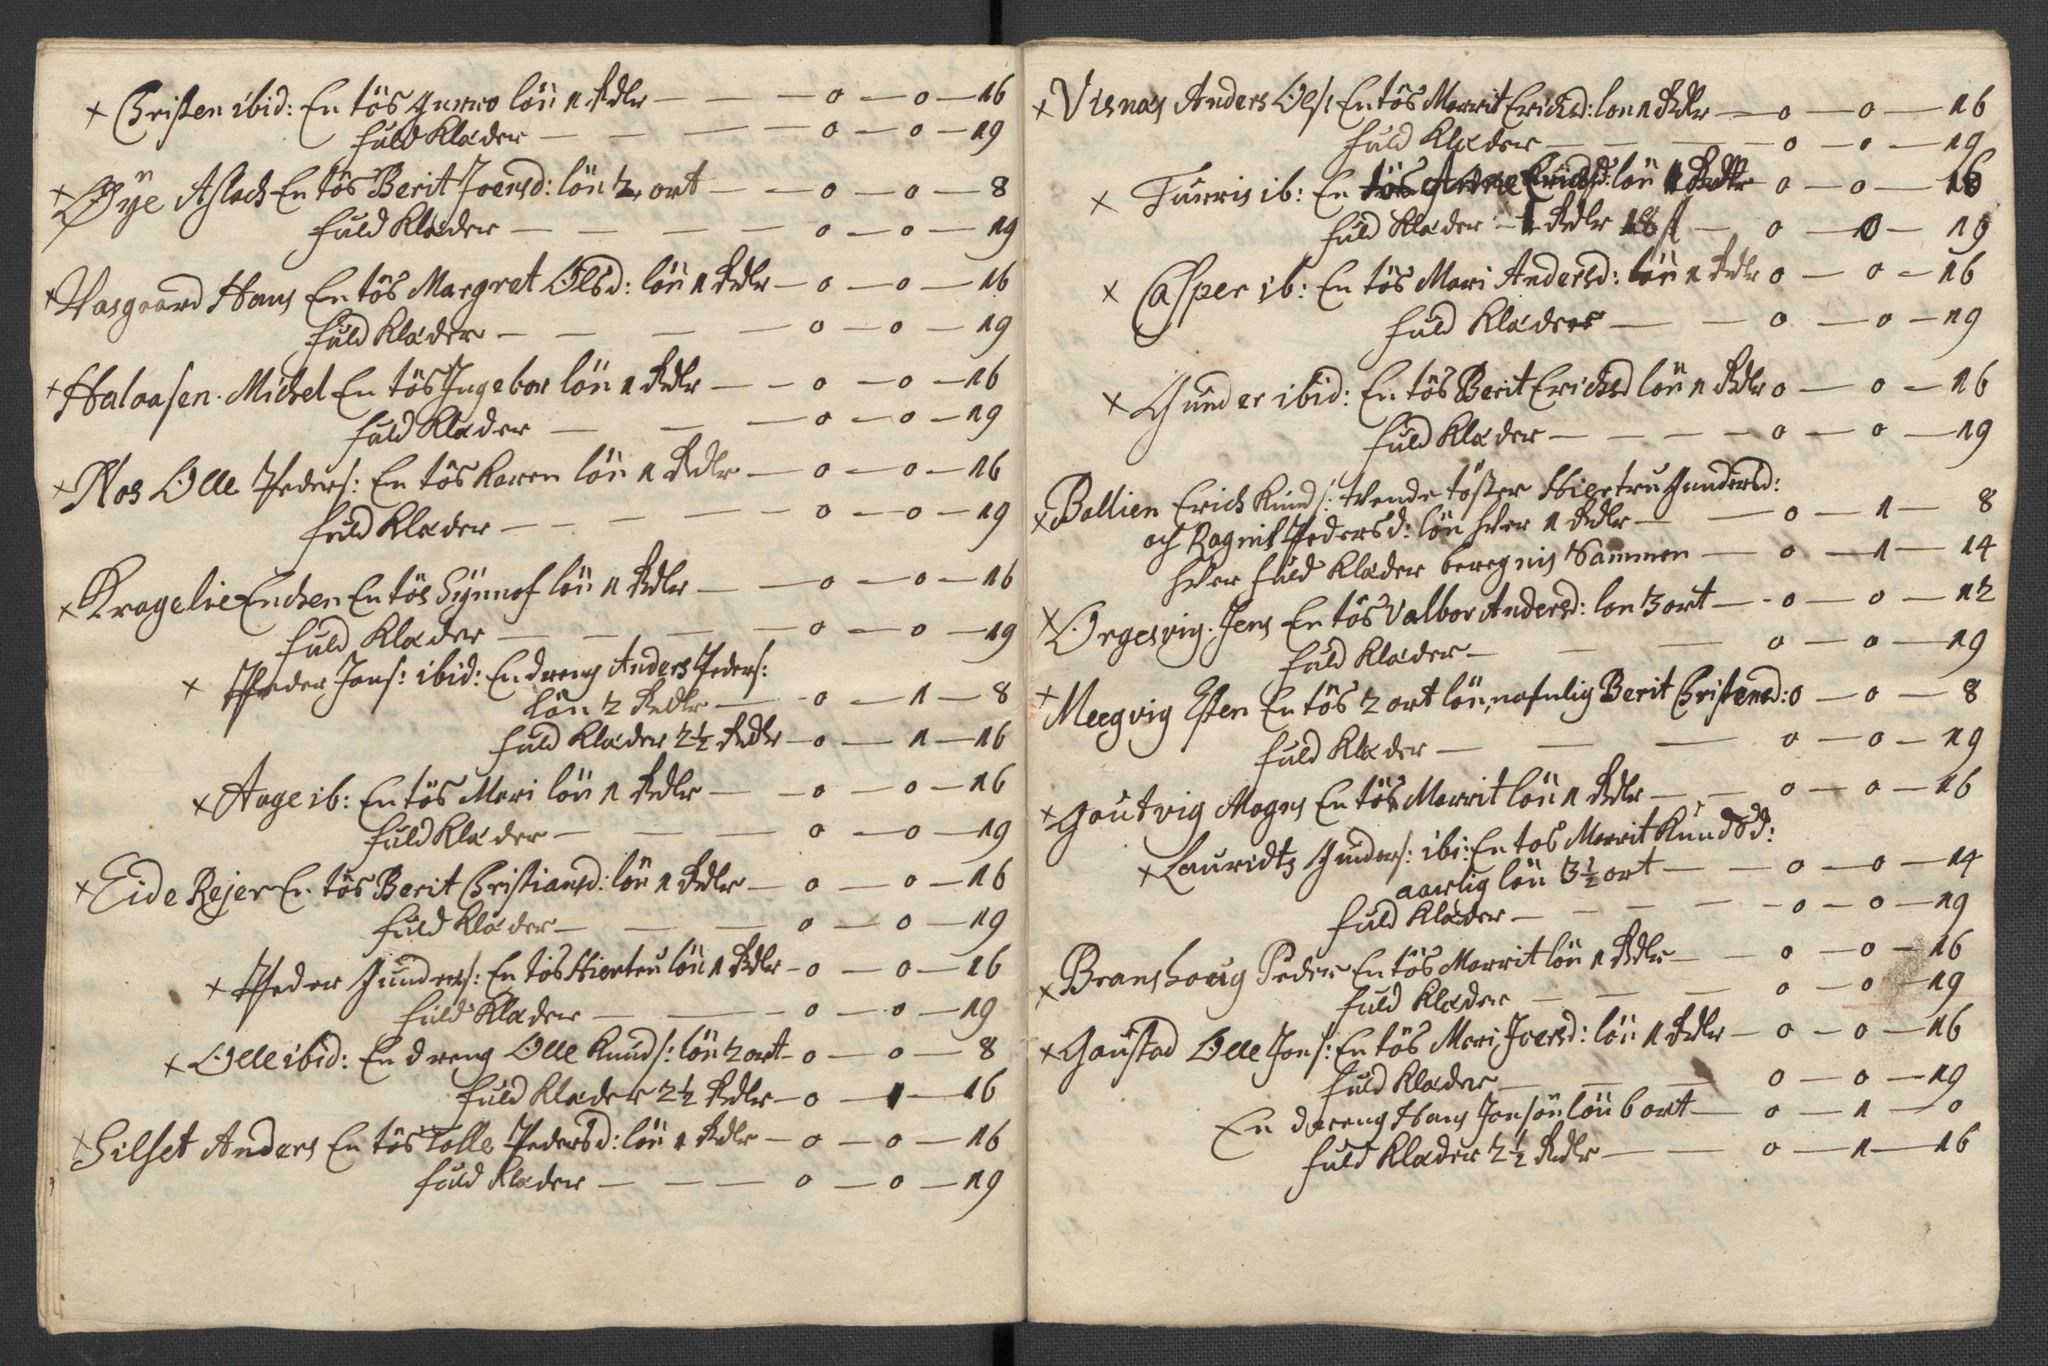 × Christen ibid: En tös Gurro lön 1 Rdlr — — — 0 — 0 — 16
fuld Klæder — — — — 0 — 0 — 19
× Øye Aslach En tös Berit Joensd: lön 2 ort — — 0 — 0 — 8
fuld Klæder — — — — 0 — 0 — 19
× Vasgaard Hans En tös Margret Olsd: lön 1 Rdlr — 0 — 0 — 16
fuld Klæder — — — — 0 — 0 — 19
× Halaasen Michel En tös Ingebor lön 1 Rdlr — — 0 — 0 — 16
fuld Klæder — — — 0 — 0 — 19
× Nos Olle Peders: En tös Karen lön 1 Rdlr — 0 — 0 — 16
fuld Klæder — — — — 0 — 0 — 19
× Kragelie Enchen En tös Synnof lön 1 Rdlr — — 0 — 0 — 16
fuld Klæder — — — — 0 — 0 — 19
× Peder Jons: ibid: En dreng Anders Peders:
lön 2 Rdlr — — 0 — 1 — 8
fuld Klæder 2½ Rdlr — 0 — 1 — 16
× Aage ib: En tös Mari lön 1 Rdlr — — 0 — 0 — 16
fuld Klæder — — — 0 — 0 — 19
× Eide Rejer En tös Berit Christiansd: lön 1 Rdlr — 0 — 0 — 16
fuld Klæder — — — 0 — 0 — 19
× Peder Gunders: En tös Hiertru lön 1 Rdlr — 0 — 0 — 16
fuld Klæder — — — 0 — 0 — 19
× Olle ibid: En dreng Olle Knuds: lön 2 ort — 0 — 0 — 8
fuld Klæder 2½ Rdlr — 0 — 1 — 16
× Silset Anders En tös Tolle Pedersd: lön 1 Rdlr — 0 — 0 — 16
fuld Klæder — — — 0 — 0 — 19
× Visnas Anders Ols: En tös Marrit Erichsd: lön 1 Rdlr — 0 — 0 — 16
fuld Klæder — — — — 0 — 0 — 19
× Turris ib: En tös Anne Erichsd: lön 1 Rdlr 0 — 0 — 16
fuld Klæder — 1 Rdlr 18 s — 0 — 0 — 19
× Casper ib: En tös Mari Andersd: lön 1 Rdlr 0 — 0 — 16
fuld Klæder — — 0 — 0 — 19
× Gunder ibid: En tös Berit Erichsd lön 1 Rdlr 0 — 0 — 16
fuld Klæder — — — — 0 — 0 — 19
× Bollien Erich Knuds: tvende töser Hiertru Gundersd:
och Ragnil Pedersd: lön hver 1 Rdlr — — 0 — 1 — 8
hver fuld Klæder beregnis Sammen — 0 — 1 — 14
× Orgesvig Jens En tös Valbor Andersd: lön 3 ort — 0 — 0 — 12
fuld Klæder — — — 0 — 0 — 19
× Meegvig Esten En tös 2 ort lön, nafnlig Berit Christensd: 0 — 0 — 8
fuld Klæder — — — 0 — 0 — 19
× Gautvig Mogns En tös Marrit lön 1 Rdlr — — 0 — 0 — 16
× Lauridtz Gunders: ibi: En tös Marrit Knudsd:
aarlig lön 3½ ort — — 0 — 0 — 14
fuld Klæder — — — — 0 — 0 — 19
× Branshoug Peder En tös Marrit lön 1 Rdlr — — 0 — 0 — 16
fuld Klæder — — — 0 — 0 — 19
× Gaustad Olle Jons: En tös Mari Joersd: lön 1 Rdlr — 0 — 0 — 16
fuld Klæder — — — 0 — 0 — 19
En dreng Hans Jonsön lön 6 ort — 0 — 1 — 0
fuld Klæder 2½ Rdlr — — 0 — 1 — 16